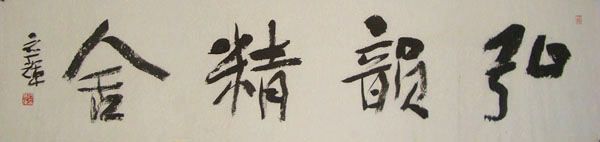 弘韻精舍